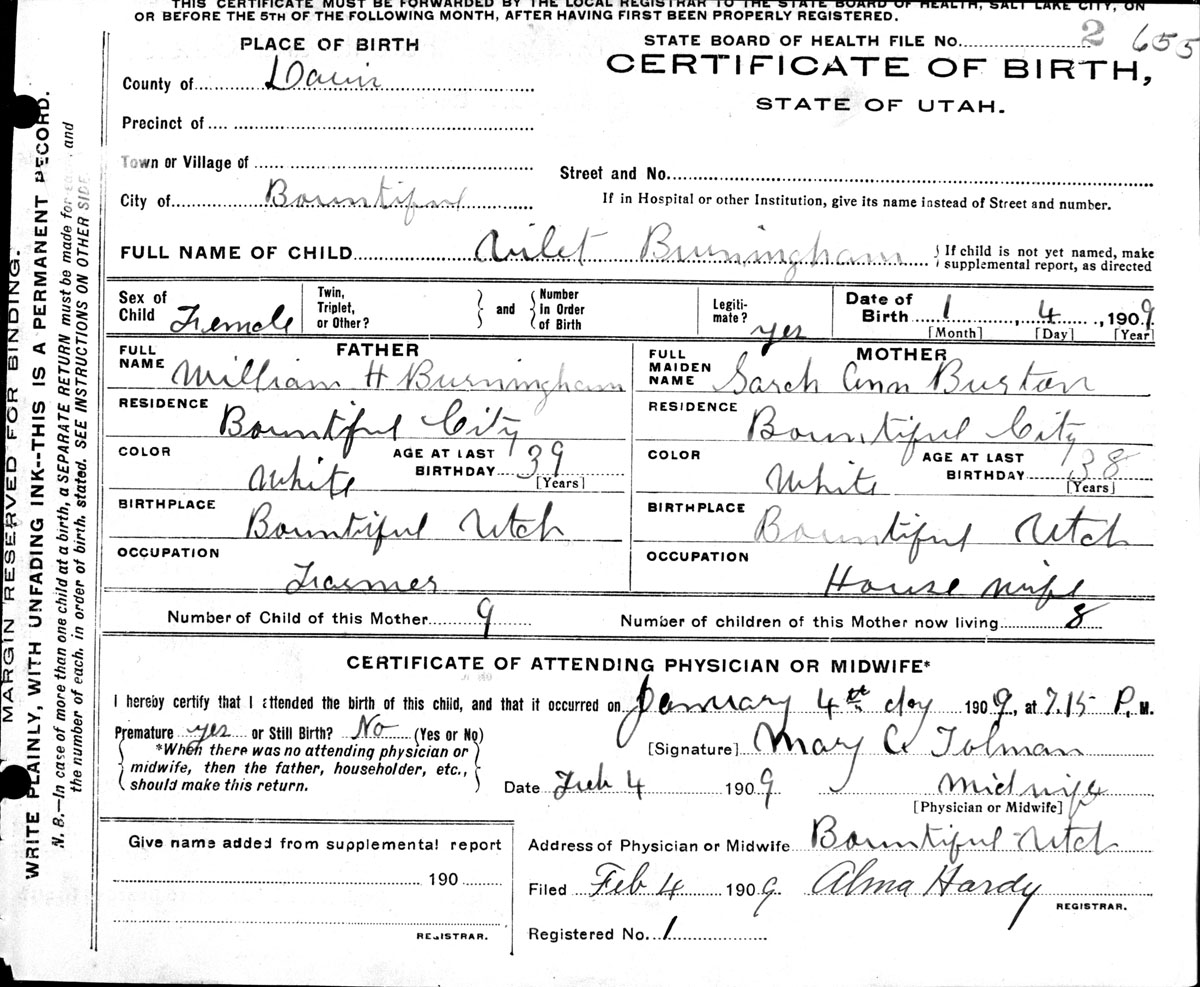 THIS CERTIFICATE MUST BE FORWARDED BY THE LOCAL REGISTRAR TO THE STATE BOARD OF HEALTH, SALT LAKE CITY, ON
OR BEFORE THE 5TH OF THE FOLLOWING MONTH, AFTER HAVING FIRST BEEN PROPERLY REGISTERED.
PLACE OF BIRTH
STATE BOARD OF HEALTH FILE No. 2 655
CERTIFICATE OF BIRTH,
STATE OF UTAH.
County of Davis
Precinct of
Town or Village of
Street and No.
City of Bountiful
If in Hospital or other Institution, give its name instead of Street and number.
FULL NAME OF CHILD Vilet Burningham
If child is not yet named, make
supplemental report, as directed
Sex of Child Female
Twin, Triplet, or Other?
and
Number In Order of Birth
Legiti-mate? yes
Date of Birth 1, 4, 1909
[Month] [Day] [Year]
FATHER
FULL NAME William H Burningham
RESIDENCE Bountiful City
COLOR White
AGE AT LAST BIRTHDAY 39
[Years]
BIRTHPLACE Bountiful Utah
OCCUPATION Farmer
MOTHER
FULL MAIDEN NAME Sarah Ann Burton
RESIDENCE Bountiful City
COLOR White
AGE AT LAST BIRTHDAY 38
[Years]
BIRTHPLACE Bountiful Utah
OCCUPATION House wife
Number of Child of this Mother 9
Number of children of this Mother now living 8
CERTIFICATE OF ATTENDING PHYSICIAN OR MIDWIFE*
I hereby certify that I attended the birth of this child, and that it occurred on January 4th day 1909, at 7.15 P. M.
Premature yes or Still Birth? No (Yes or No)
*When there was no attending physician or
midwife, then the father, householder, etc.,
should make this return.
[Signature] Mary C. Tolman
Date Feb 4 1909 Midwife
[Physician or Midwife]
Give name added from supplemental report
190
REGISTRAR.
Address of Physician or Midwife Bountiful Utah
Filed Feb 4 1909 Alma Hardy
REGISTRAR.
Registered No. 1
MARGIN RESERVED FOR BINDING.
WRITE PLAINLY, WITH UNFADING INK--THIS IS A PERMANENT RECORD.
N. B.—In case of more than one child at a birth, a SEPARATE RETURN must be made for and
the number of each, in order of birth, stated. SEE INSTRUCTIONS ON OTHER SIDE.